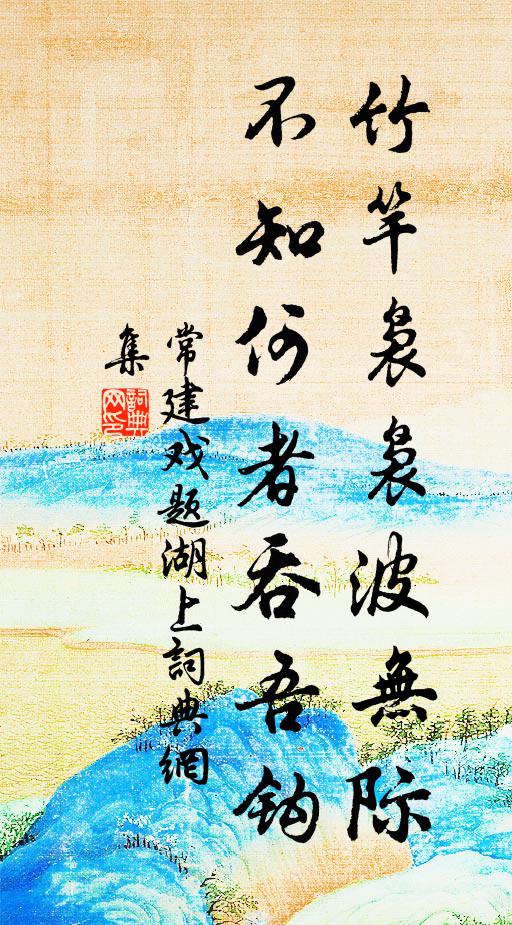 竹竿袅袅波無际
不知何者吞吾钩
常建戏题湖上詞典網
集
詞典网印